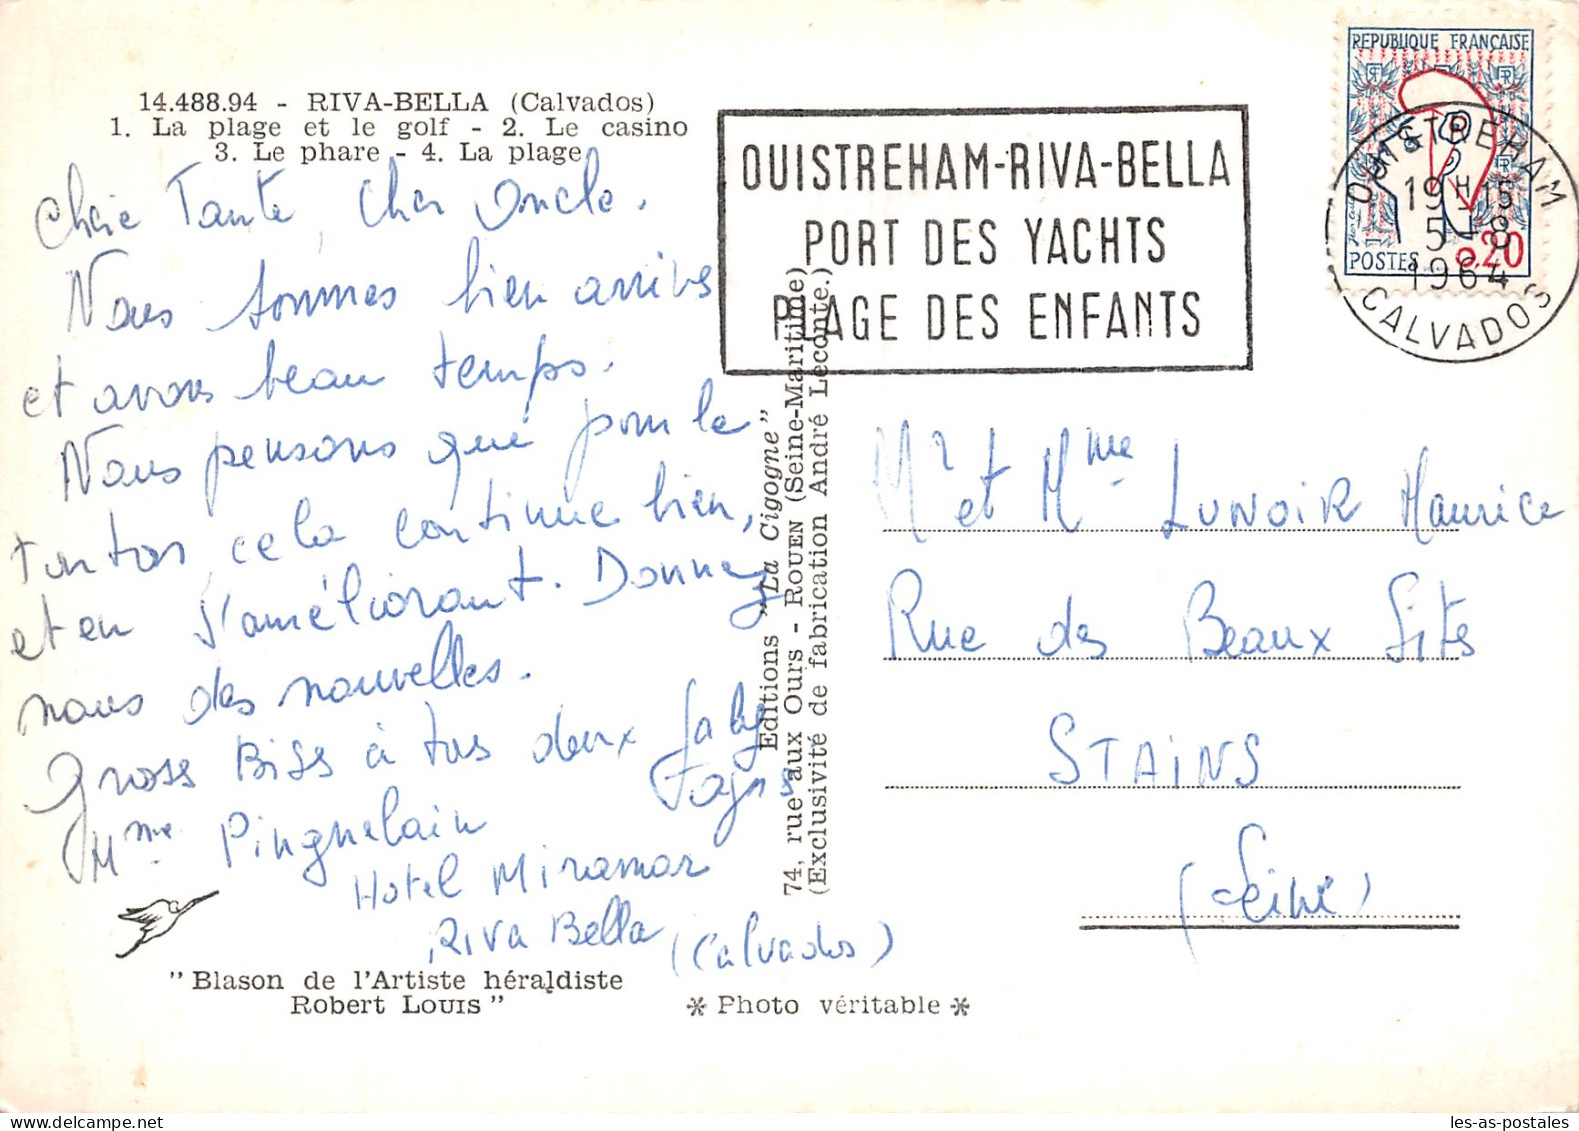 14.488.94 - RIVA-BELLA (Calvados)
1. La plage et le golf - 2. Le casino
3. Le phare - 4. La plage
Chère Tante, Cher Oncle.
Nous sommes bien arrivés
et avons beau temps.
Nous pensons que pour le
tonton, cela continue bien,
et en s'améliorant. Donnez
nous des nouvelles.
Gross Biss à tus deux Gaby
Mme Pinguelain
Hotel Miramar
Riva Bella (Calvados)
"Blason de l'Artiste héraldiste
Robert Louis"
* Photo véritable *
Editions "La Cigogne"
74, rue aux Ours - ROUEN (Seine-Maritime)
(Exclusivité de fabrication André Leconte.)
OUISTREHAM-RIVA-BELLA
PORT DES YACHTS
PLAGE DES ENFANTS
REPUBLIQUE FRANÇAISE
POSTES 0.20
OUISTREHAM
19H15
5-8
1964
CALVADOS
Mr et Mme LUNOIR Maurice
Rue des Beaux Sites
STAINS
(Seine)
les-as-postales